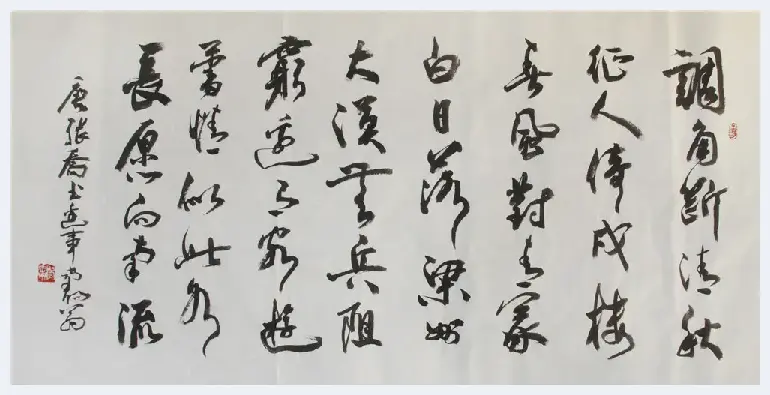 調角断清秋
征人倚戍楼
春風對青冢
白日落梁州
大漠無兵阻
窮邊有客遊
蕃情似此水
長愿向南流
唐張喬書邊事